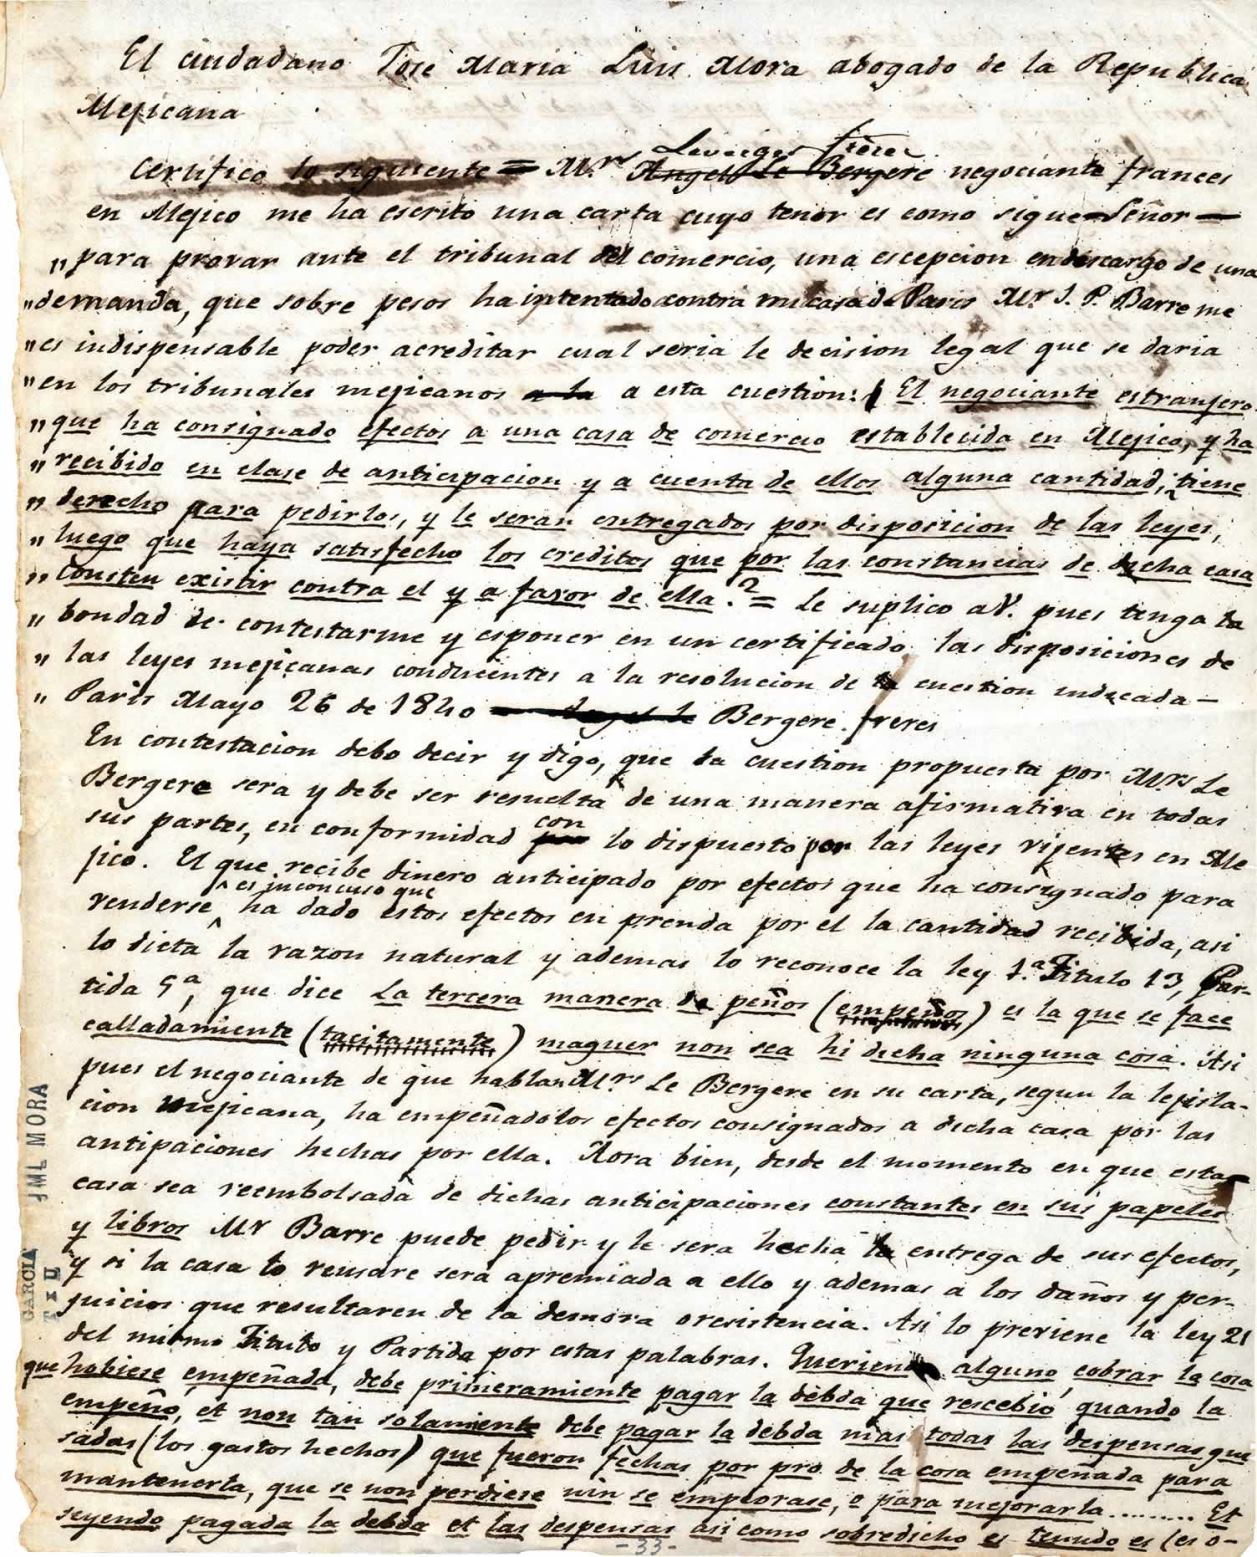 El ciudadano José Maria Luis Mora abogado de la Republica
Mejicana
Certifico lo siguiente = M.rs Leveiger frères Angel Le Bergere negociante frances
en Mejico me ha escrito una carta cuyo tenor es como sigue = Señor —
„ para provar ante el tribunal del comercio, una escepcion en descargo de una
„ demanda, que sobre pesos ha intentado contra mi casa de Paris Mr. J. P. Barre me
„ es indispensable poder acreditar cual seria le decision legal que se daria
„ en los tribunales mejicanos a la a esta cuestion: El negociante estranjero
„ que ha consignado efectos a una casa de comercio establecida en Mejico, y ha
„ recibido en clase de anticipacion y a cuenta de ellos alguna cantidad, ¿tiene
„ derecho para pedirlos, y le seran entregados por disposicion de las leyes,
„ luego que haya satisfecho los creditos que por las constancias de dicha casa
„ consten existir contra el y a favor de ella.? = Le suplico a V. pues tenga la
„ bondad de contestarme y esponer en un certificado las disposiciones de
„ las leyes mejicanas conducientes a la resolucion de la cuestion indicada —
„ Paris Mayo 26 de 1840 — Angel Le Bergere. freres
En contestacion debo decir y digo, que la cuestion propuesta por Mrs Le
Bergere sera y debe ser resuelta de una manera afirmativa en todas
sus partes, en conformidad por con lo dispuesto por las leyes vijentes en Me
jico. El que recibe dinero anticipado por efectos que ha consignado para
venderse ^ es inconcuso que ha dado estos efectos en prenda por el la cantidad recibida, asi
lo dicta la razon natural y ademas lo reconoce la ley 1.ª Titulo 13, Par-
tida 5ª, que dice La tercera manera de peños (empeños) es la que se face
calladamiente (tacitamente) maguer non sea hi dicha ninguna cosa. Asi
pues el negociante de que hablan Mrs Le Bergere en su carta, segun la lejisla-
cion mejicana, ha empeñado los efectos consignados a dicha casa por las
antipaciones hechas por ella. Aora bien, desde el momento en que esta
casa sea reembolsada de dichas anticipaciones constantes en sus papeles
y libros Mr Barre puede pedir y le sera hecha la entrega de sus efectos,
y si la casa lo reusare sera apremiada a ello y ademas a los daños y per-
juicios que resultaren de la demora o resistencia. Asi lo previene la ley 21
del mismo Titulo y Partida por estas palabras. Queriendo alguno cobrar la cosa
que hobiese empeñada, debe primeramiente pagar la debda que rescebió quando la
empeño, et non tan solamiente debe pagar la debda mas todas las despensas que
sadas (los gastos hechos) que fueron fechas por pro de la cosa empeñada para
mantenerla, que se non perdiese nin se empeorase, o para mejorarla ......... Et
seyendo pagada la debda et las despensas asi como sobredicho es tenudo es (es o-
-33-
JML MORA
GARCIA